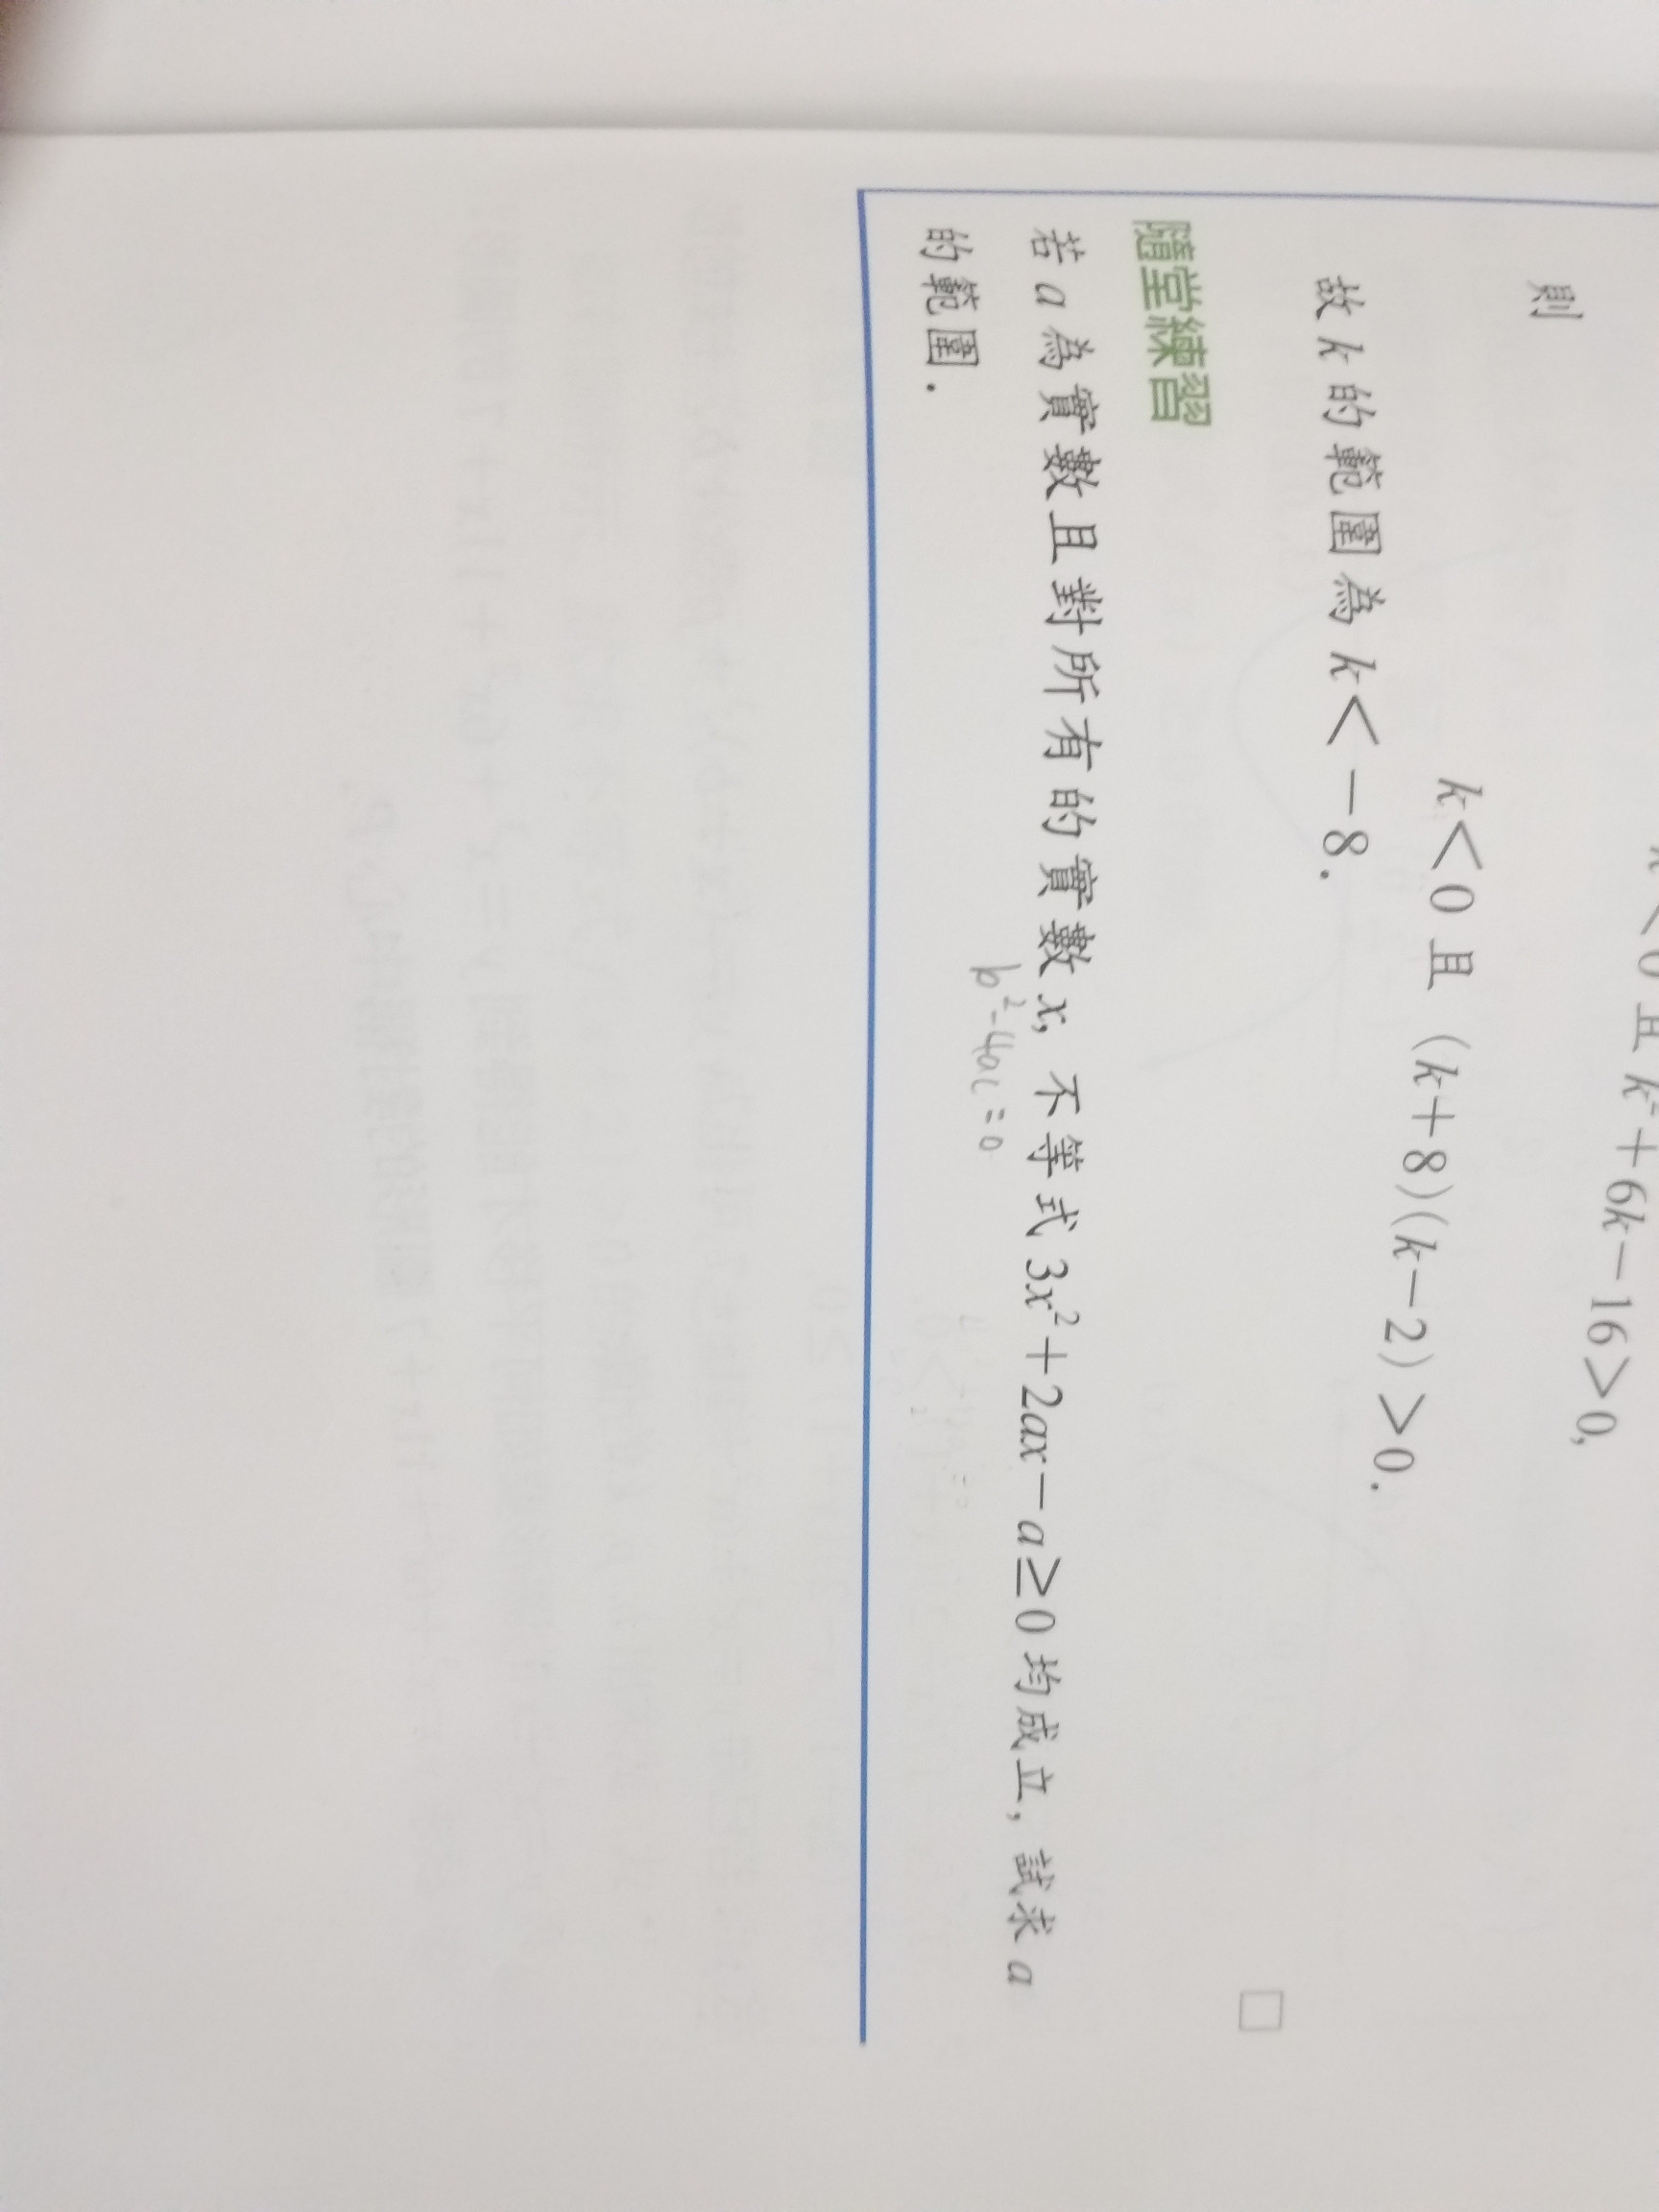 <0 且 k²+6k－16>0,
則
k<0 且 (k+8)(k－2)>0.
故 k 的範圍為 k<－8.
□
隨堂練習
若 a 為實數且對所有的實數 x, 不等式 3x²+2ax－a≥0 均成立, 試求 a
b²-4ac=0
的範圍.